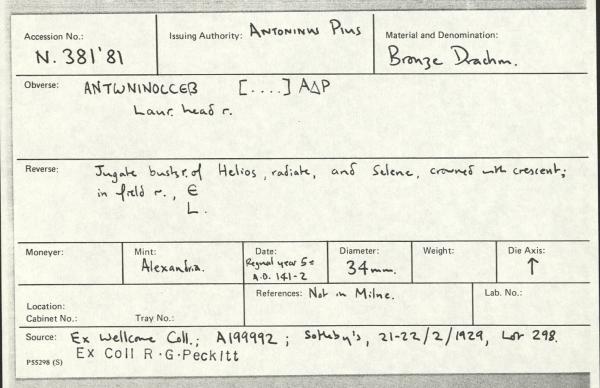 Accession No.: N. 381'81
Issuing Authority: ANTONINUS PIUS
Material and Denomination: Bronze Drachm.
Obverse: ANTWNINOCCEB [....] ΑΔΡ
Laur. head r.
Reverse: Jugate busts r. of Helios, radiate, and Selene, crowned with crescent;
in field r., Є
L.
Moneyer:
Mint: Alexandria.
Date: Regnal year 5 = A.D. 141-2
Diameter: 34mm.
Weight:
Die Axis: ↑
Location:
Cabinet No.: Tray No.:
References: Not in Milne.
Lab. No.:
Source: Ex Wellcome Coll.; A199992; Sotheby's, 21-22/2/1929, Lot 298.
Ex Coll R.G.Peckitt
P55298 (S)